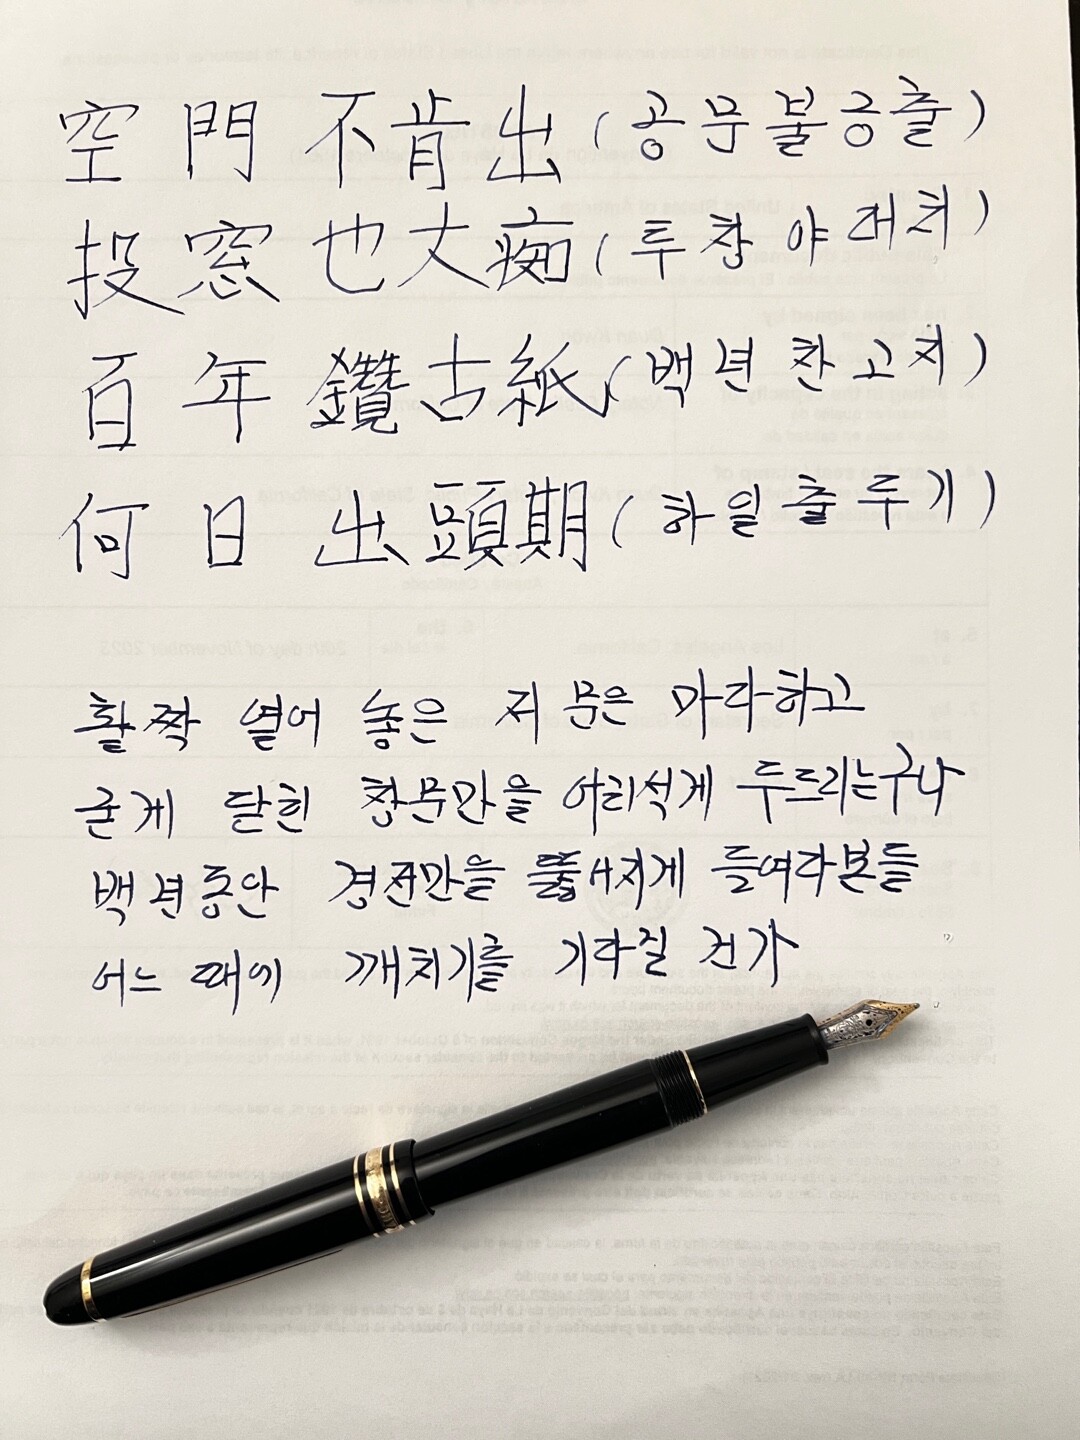 空門不肯出(공문불긍출)
投窓也大痴(투창야대치)
百年鑽古紙(백년찬고지)
何日出頭期(하일출두기)
활짝 열어 놓은 저 문은 마다하고
굳게 닫힌 창문만을 어리석게 두드리는구나
백년동안 경전만을 뚫어지게 들여다본들
어느 때에 깨치기를 기다릴 건가